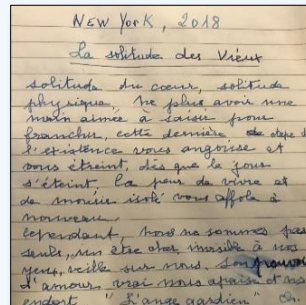 NEW YORK, 2018
La solitude des Vieux
solitude du cœur, solitude
physique, ne plus avoir une
main aimée à saisir pour
franchir, cette dernière étape de
l'existence vous angoisse et
vous étreint, dès que le jour
s'éteint, la peur de vivre et
de mourir isolé vous affole à
nouveau.
Cependant, nous ne sommes pas
seuls, un être cher, invisible à nos
yeux, veille sur nous. Son pouvoir
d'amour vrai nous apaise et nous
endort "L'ange gardien"